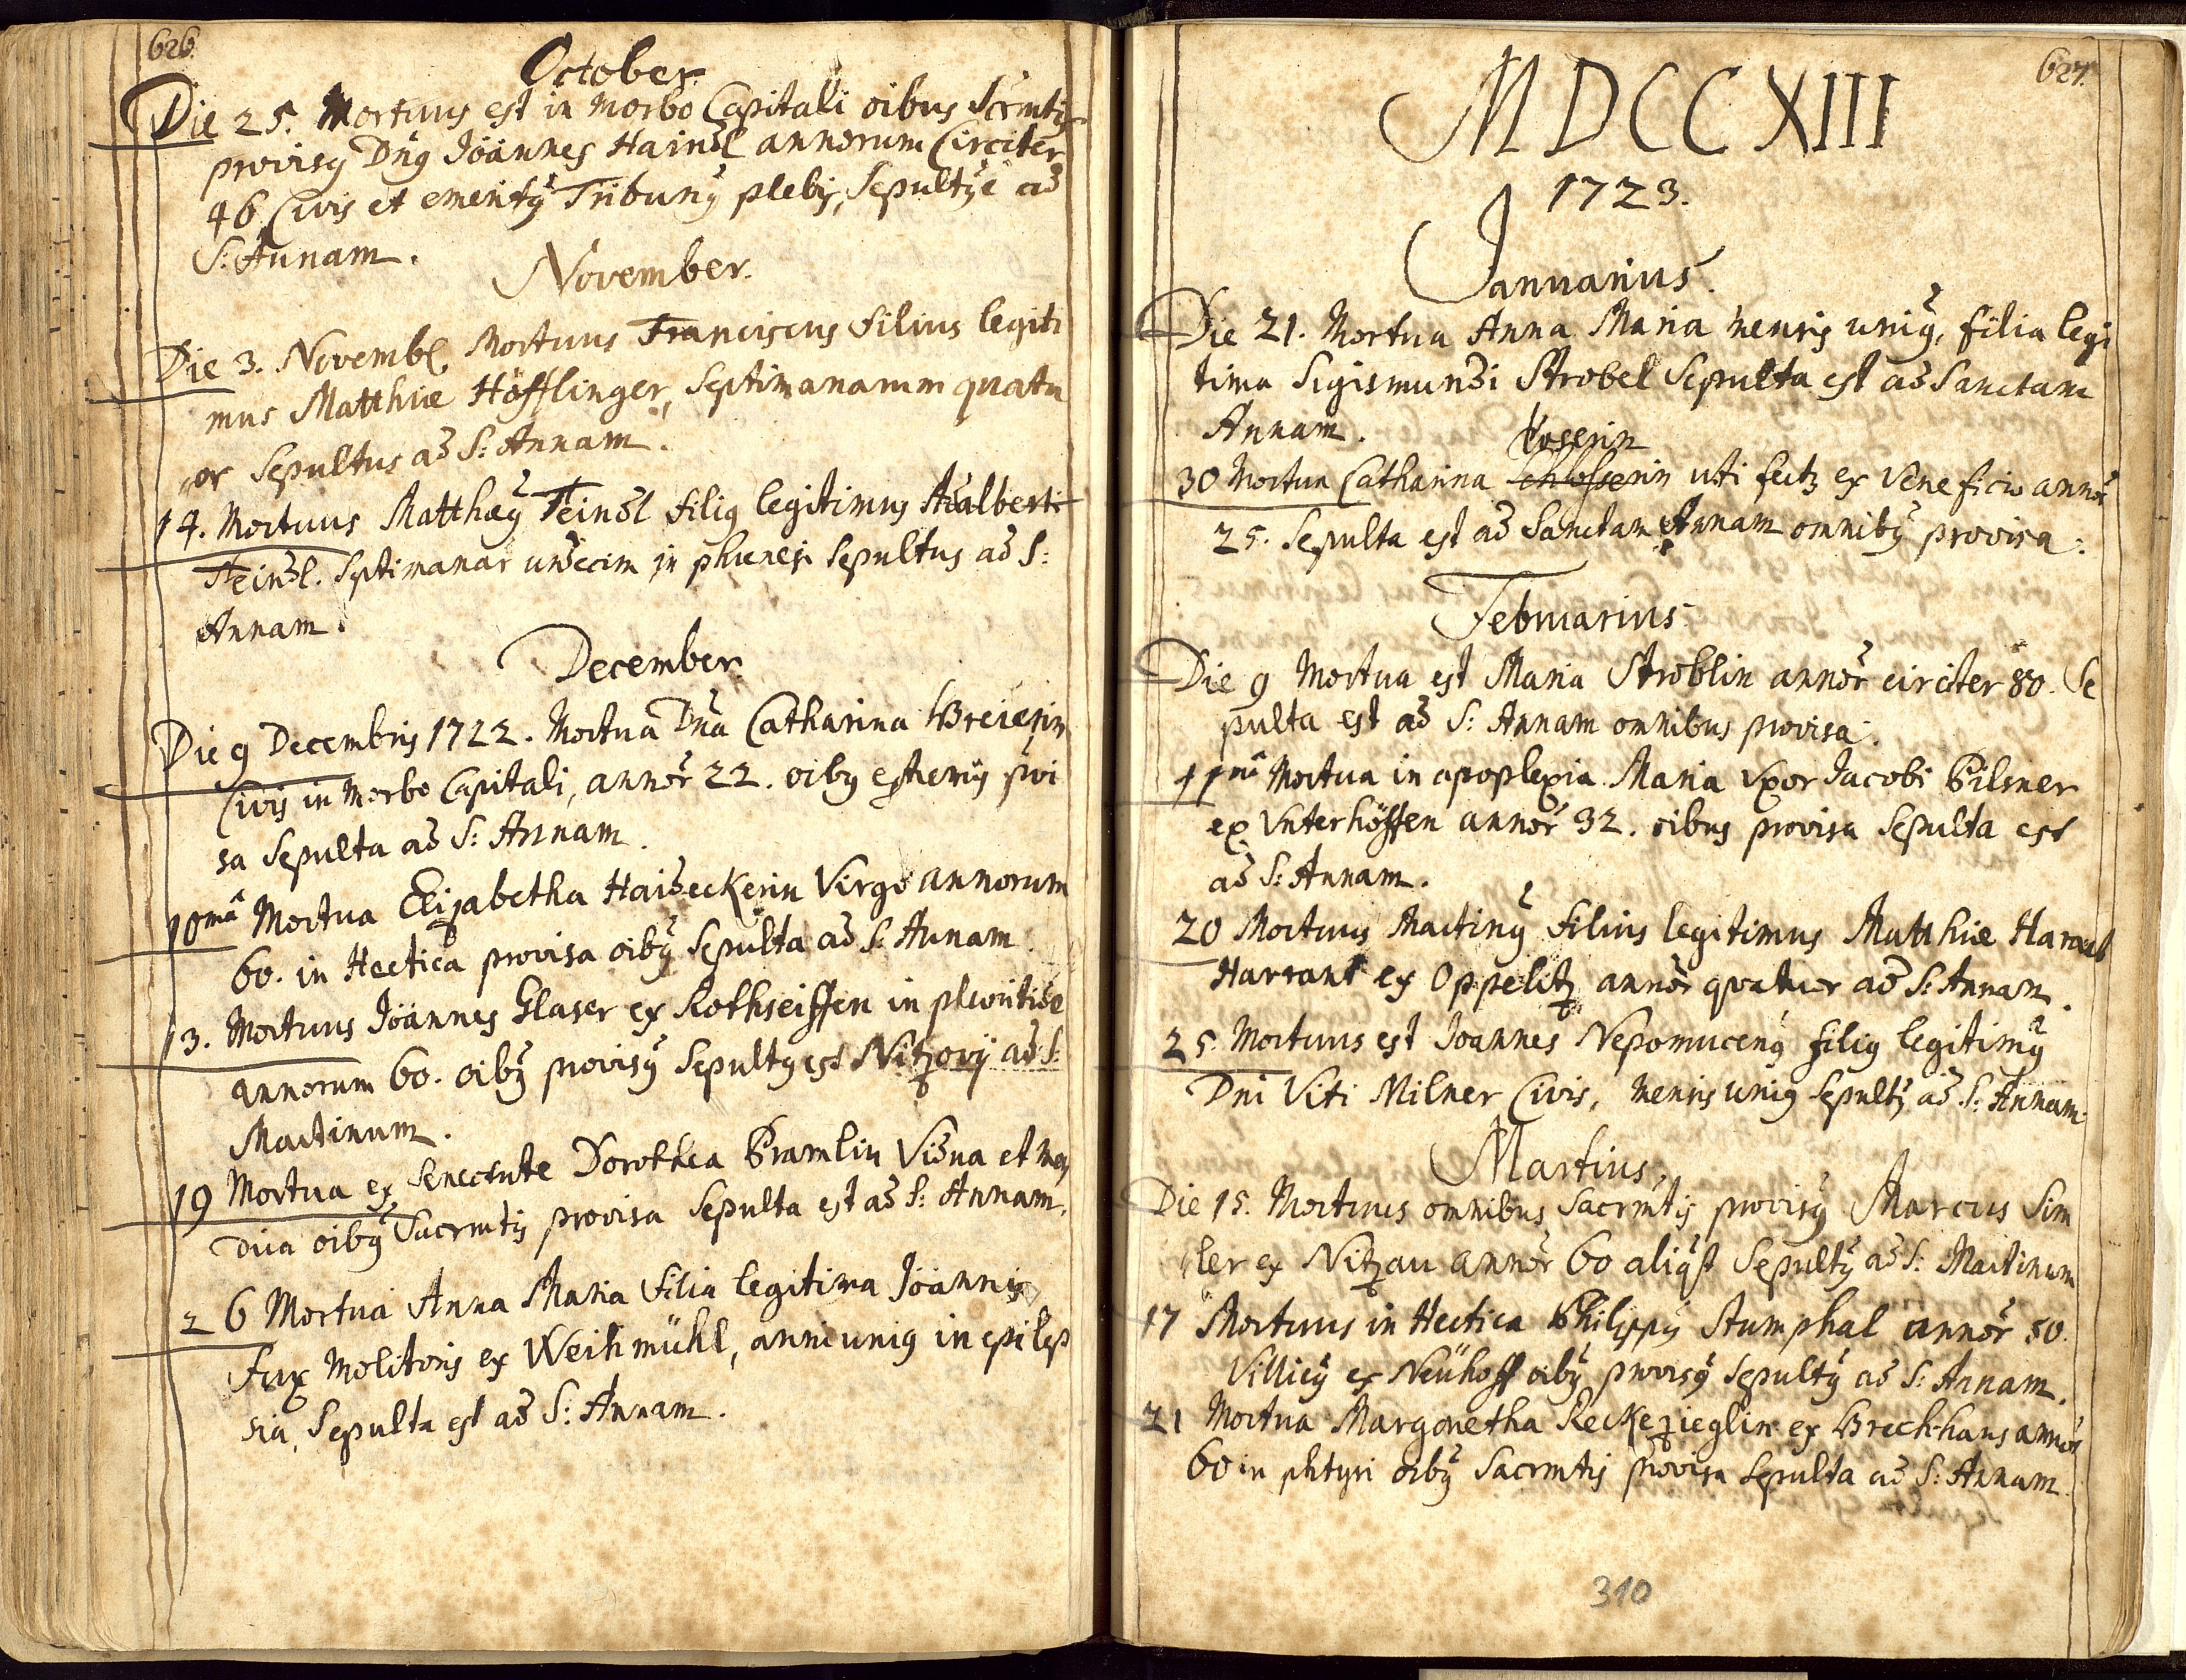 626.
October.
Die 25. Mortuus est in Morbo Capitali oibus Scrmtis
provisus Dnus Joannes Haindl annorum Circiter
46 Civis et emeritus Tribunus plebis, Sepultus ẽ ad
S: Annam.
November.
Die 3. Novemb. Mortuus Franciscus filius legiti
mus Matthiæ Höfflinger, Septimanarum quatu
or Sepultus ad S: Annam.
14. Mortuus Matthæus Steindl filius legitimus Adalberti
Steindl. Septimanar undecim in phrenesi Sepultus ad S:
Annam.
December.
Die 9 Decembris 1722. Mortua Dna Catharina Breierin
Civis in Morbo Capitali, annor 22. oibus extremis provi
sa Sepulta ad S: Annam.
10mâ Mortua Elisabetha Haideckerin Virgo annorum
60. in Hectica provisa oibus Sepulta ad S: Annam.
13. Mortuus Joannes Glaser ex Rothseiffen in pleuritide
annorum 60. oibus provisus Sepultus est Nitzovij ad S:
Martinum.
19 Mortua ex Senectute Dorothea Pramlin Vidua et men
dica oibus Sacrmtis provisa Sepulta est ad S: Annam.
26 Mortua Anna Maria filia legitima Joannis
Fux Molitoris ex Weihmühl, anni unius in epilep
sia, Sepulta est ad S: Annam.
627.
MDCCXIII
1723.
Januarius.
Die 21. Mortua Anna Maria mensis unius, filia legi
tima Sigismundi Strobel Sepulta est ad Sanctam
Annam.
30 Mortua Catharina uti fertur ex Veneficio annor
25. Sepulta est ad Sanctam Annam omnibus provisa.
Februarius.
Die 9 Mortua est Maria Stroblin annor circiter 80. Se
pulta est ad S: Annam omnibus provisa.
11mâ Mortua in apoplexia Maria Uxor Jacobi Pilsner
ex Unterhöffen annor 32. oibus provisa Sepulta est
ad S: Annam.
20 Mortuus Martinus filius legitimus Matthiæ
Harrant ex Oppelitz annor quatuor ad S: Annam.
25. Mortuus est Joannes Nepomucenus filius legitimus
Dni Viti Milner Civis, mensis unius Sepultus ad S: Annam.
Martius.
Die 15. Mortuus omnibus Sacrmtis provisus Marcus Sim
ler ex Nitzau annor 60 aliquot Sepultus ad S: Martinum
17 Mortuus in Hectica Philippus Stumphal annor 50.
Villicus ex Neühoff oibus provisus Sepultus ad S: Annam.
21 Mortua Margaretha Reckezieglin ex Brechhaus annor
60 in phtysi oibus Sacrmtis provisa Sepulta ad S: Annam.
310